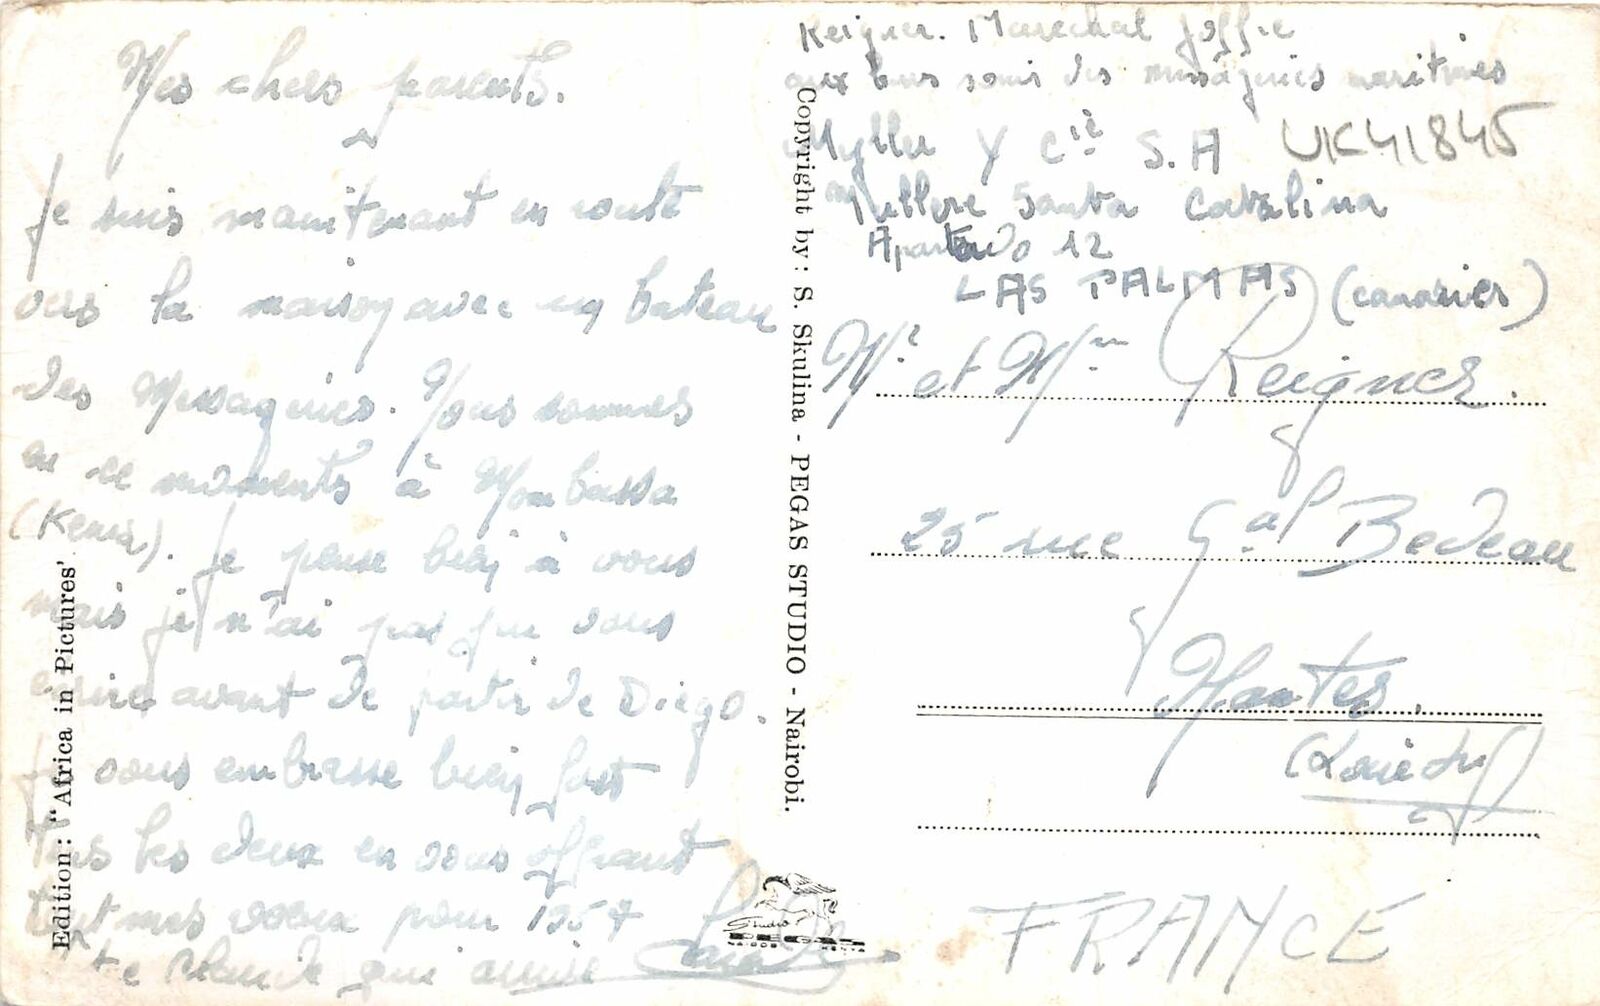 Mes chers parents.
Je suis maintenant en route
vers la maison avec un bateau
des Messageries. Nous sommes
en ce moments à Mombassa
(Kenia). Je pense bien à vous
mais je n'ai pas pu vous
écrire avant de partir de Diego.
Je vous embrasse bien fort
Tous les deux en vous offrant
tout mes voeux pour 1957
qui arrive
Edition: "Africa in Pictures'
Copyright by: S. Skulina - PEGAS STUDIO - Nairobi.
Studio
PEGAS
NAIROBI KENYA
Reigner. Marechal Joffre
aux bons soins des messageries maritimes
Myller Y Cie S.A
UK41845
Muellere Santa Catalina
Apartado 12
LAS PALMAS (canaries)
Mr et Mme Reigner.
25 rue Gal Bedeau
Nantes.
(Loire Inf)
FRANCE